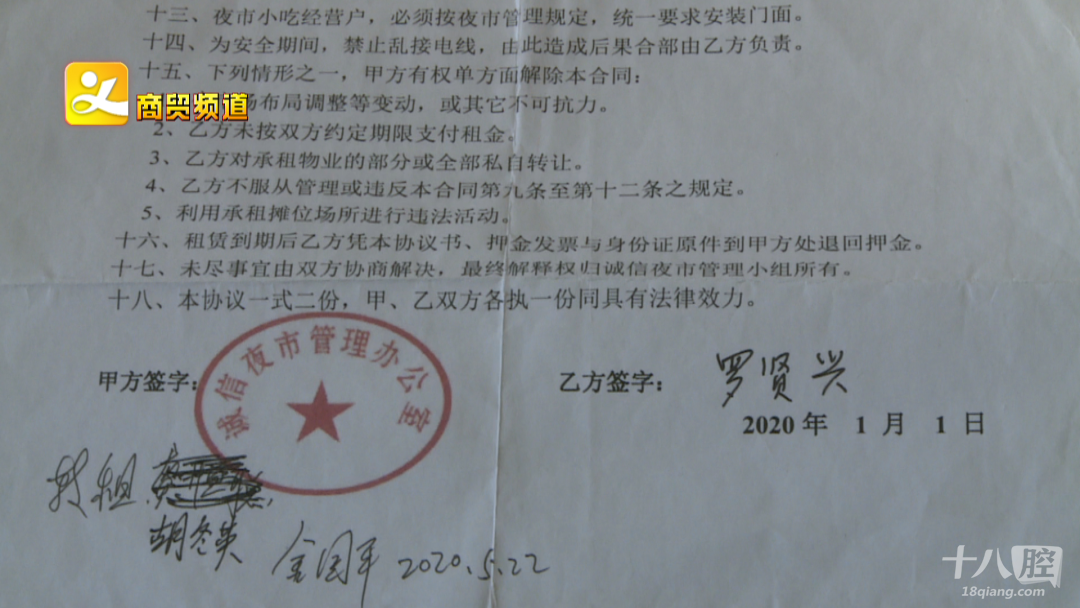 十三、夜市小吃经营户，必须按夜市管理规定，统一要求安装门面。
十四、为安全期间，禁止乱接电线，由此造成后果合部由乙方负责。
十五、下列情形之一，甲方有权单方面解除本合同：
商贸频道
场布局调整等变动，或其它不可抗力。
2、乙方未按双方约定期限支付租金。
3、乙方对承租物业的部分或全部私自转让。
4、乙方不服从管理或违反本合同第九条至第十二条之规定。
5、利用承租摊位场所进行违法活动。
十六、租赁到期后乙方凭本协议书、押金发票与身份证原件到甲方处退回押金。
十七、未尽事宜由双方协商解决，最终解释权归诚信夜市管理小组所有。
十八、本协议一式二份，甲、乙双方各执一份同具有法律效力。
诚信夜市管理办公室
甲方签字：
乙方签字：罗贤兴
2020年 1月 1日
转租
胡冬英 金国平 2020.5.22
十八腔
18qiang.com